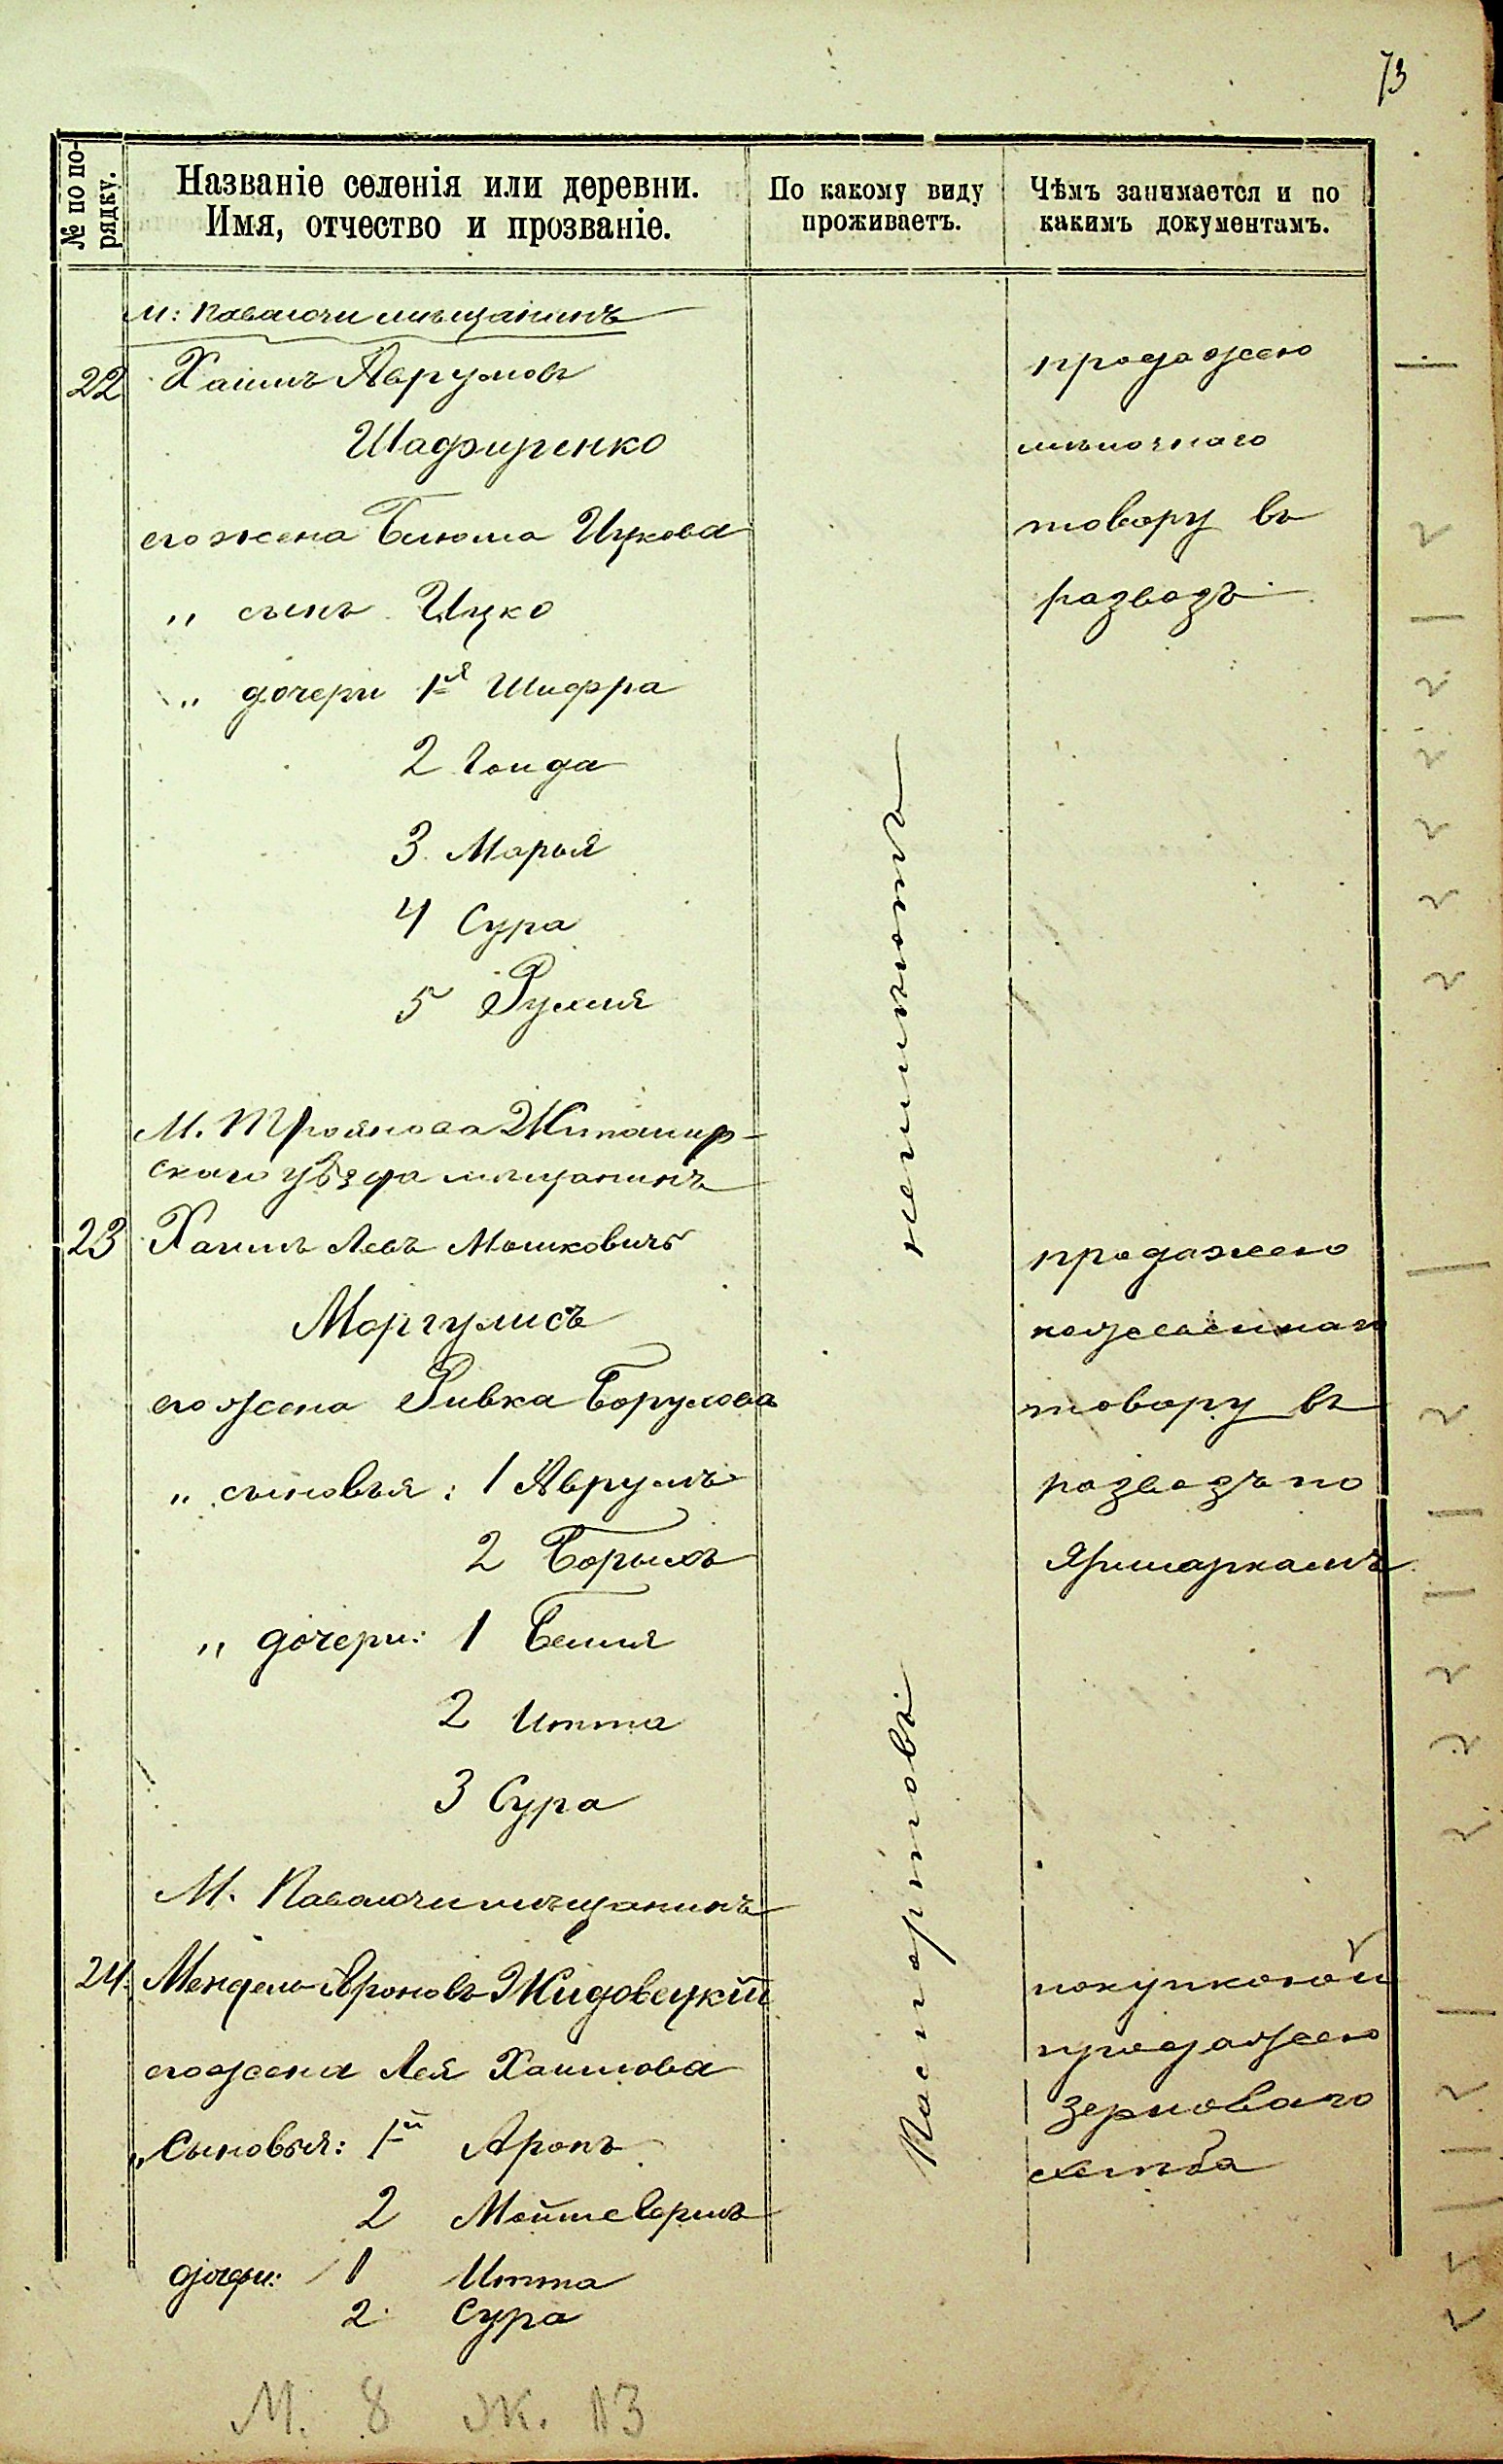 73
№ по по-
рядку.
Названіе селенія или деревни.
Имя, отчество и прозваніе.
По какому виду
проживаетъ.
Чѣмъ занимается и по
какимъ документамъ.
М: Паволочи мѣщанинъ
22 Хаимъ Аврумовъ
Шафиренко
его жена Блюма Ицкова
„ сынъ Ицко
„ дочери 1я Шифра
2 Гоида
3 Марья
4 Сура
5 Рухля
продажею
мѣлочнаго
товару въ
развозъ
М. Троянова Житомир-
скаго уѣзда мѣщанинъ
23 Хаимъ Лейбъ Мошковичъ
Моргулисъ
его жена Ривка Борухова
„ сыновья: 1 Аврумъ
2 Борыхъ
„ дочери: 1 Бейля
2 Итта
3 Сура
продажею
кожевеннаго
товару въ
развозъ по
Ярмаркамъ
М. Паволочи мѣщанинъ
24. Мендель Ароновъ Жидовецкій
его жена Лея Хаимова
„ Сыновья: 1й Аронъ
2 Мойше Берко
дочери: 1 Итта
2. Сура
покупкою и
продажею
зерноваго
хлѣба
Паспортовъ
неимѣютъ
М. 8 Ж. 13